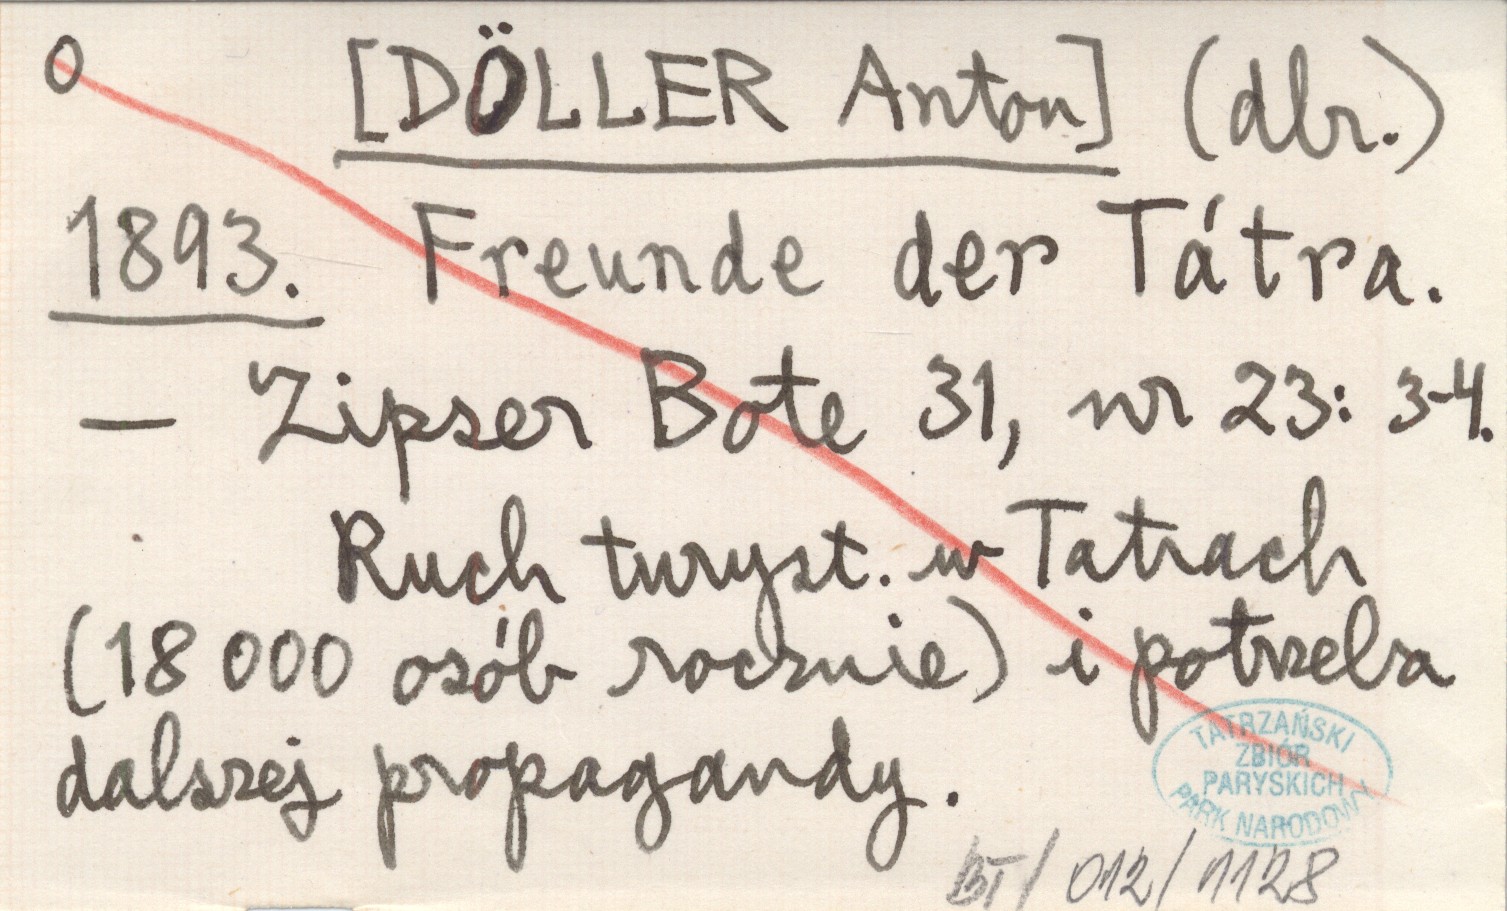 0 [DÖLLER Anton] (dbr.)
1893. Freunde der Tátra.
— Zipser Bote 31, nr 23: 3-4.
Ruch turyst. w Tatrach
(18 000 osób rocznie) i potrzeba
dalszej propagandy.
TATRZAŃSKI
ZBIÓR
PARYSKICH
PARK NARODOWY
BT/012/1128